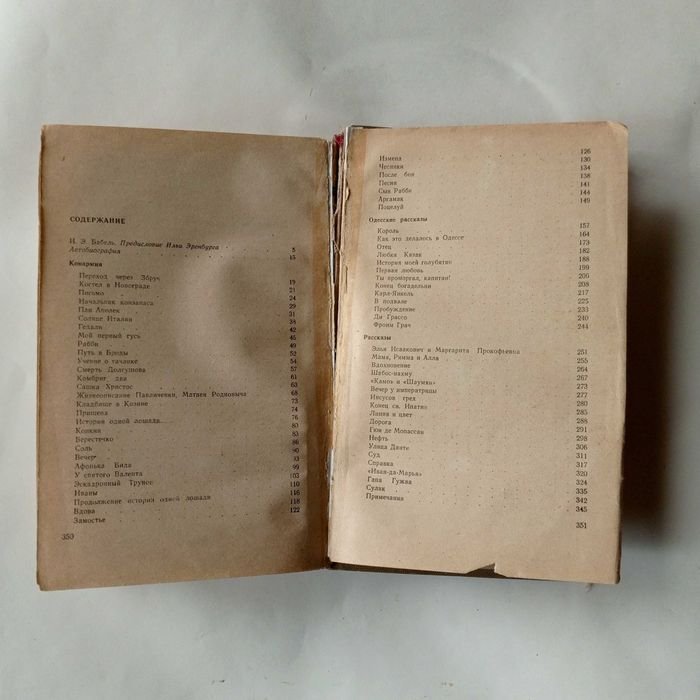 СОДЕРЖАНИЕ
И. Э. Бабель. Предисловие Ильи Эренбурга 5
Автобиография 15
Конармия
Переход через Збруч 19
Костел в Новограде 21
Письмо 24
Начальник конзапаса 29
Пан Аполек 31
Солнце Италии 38
Гедали 42
Мой первый гусь 45
Рабби 49
Путь в Броды 52
Учение о тачанке 54
Смерть Долгушова 57
Комбриг два 61
Сашка Христос 63
Жизнеописание Павличенки, Матвея Родионыча 68
Кладбище в Козине 73
Прищепа 74
История одной лошади 76
Конкин 80
Берестечко 83
Соль 86
Вечер 90
Афонька Бида 93
У святого Валента 99
Эскадронный Трунов 103
Иваны 110
Продолжение истории одной лошади 116
Вдова 118
Замостье 122
350
Измена 126
Чесники 130
После боя 134
Песня 138
Сын Рабби 141
Аргамак 144
Поцелуй 149
Одесские рассказы
Король 157
Как это делалось в Одессе 164
Отец 173
Любка Казак 182
История моей голубятни 188
Первая любовь 199
Ты проморгал, капитан! 206
Конец богадельни 208
Карл-Янкель 217
В подвале 225
Пробуждение 233
Ди Грассо 240
Фроим Грач 244
Рассказы
Элья Исаакович и Маргарита Прокофьевна 251
Мама, Римма и Алла 255
Вдохновение 264
Шабос-нахму 267
«Камо» и «Шаумян» 273
Вечер у императрицы 277
Иисусов грех 280
Конец св. Ипатия 285
Линия и цвет 288
Дорога 291
Гюи де Мопассан 298
Нефть 306
Улица Данте 311
Суд 317
Справка 320
«Иван-да-Марья» 324
Гапа Гужва 335
Сулак 342
Примечания 345
351